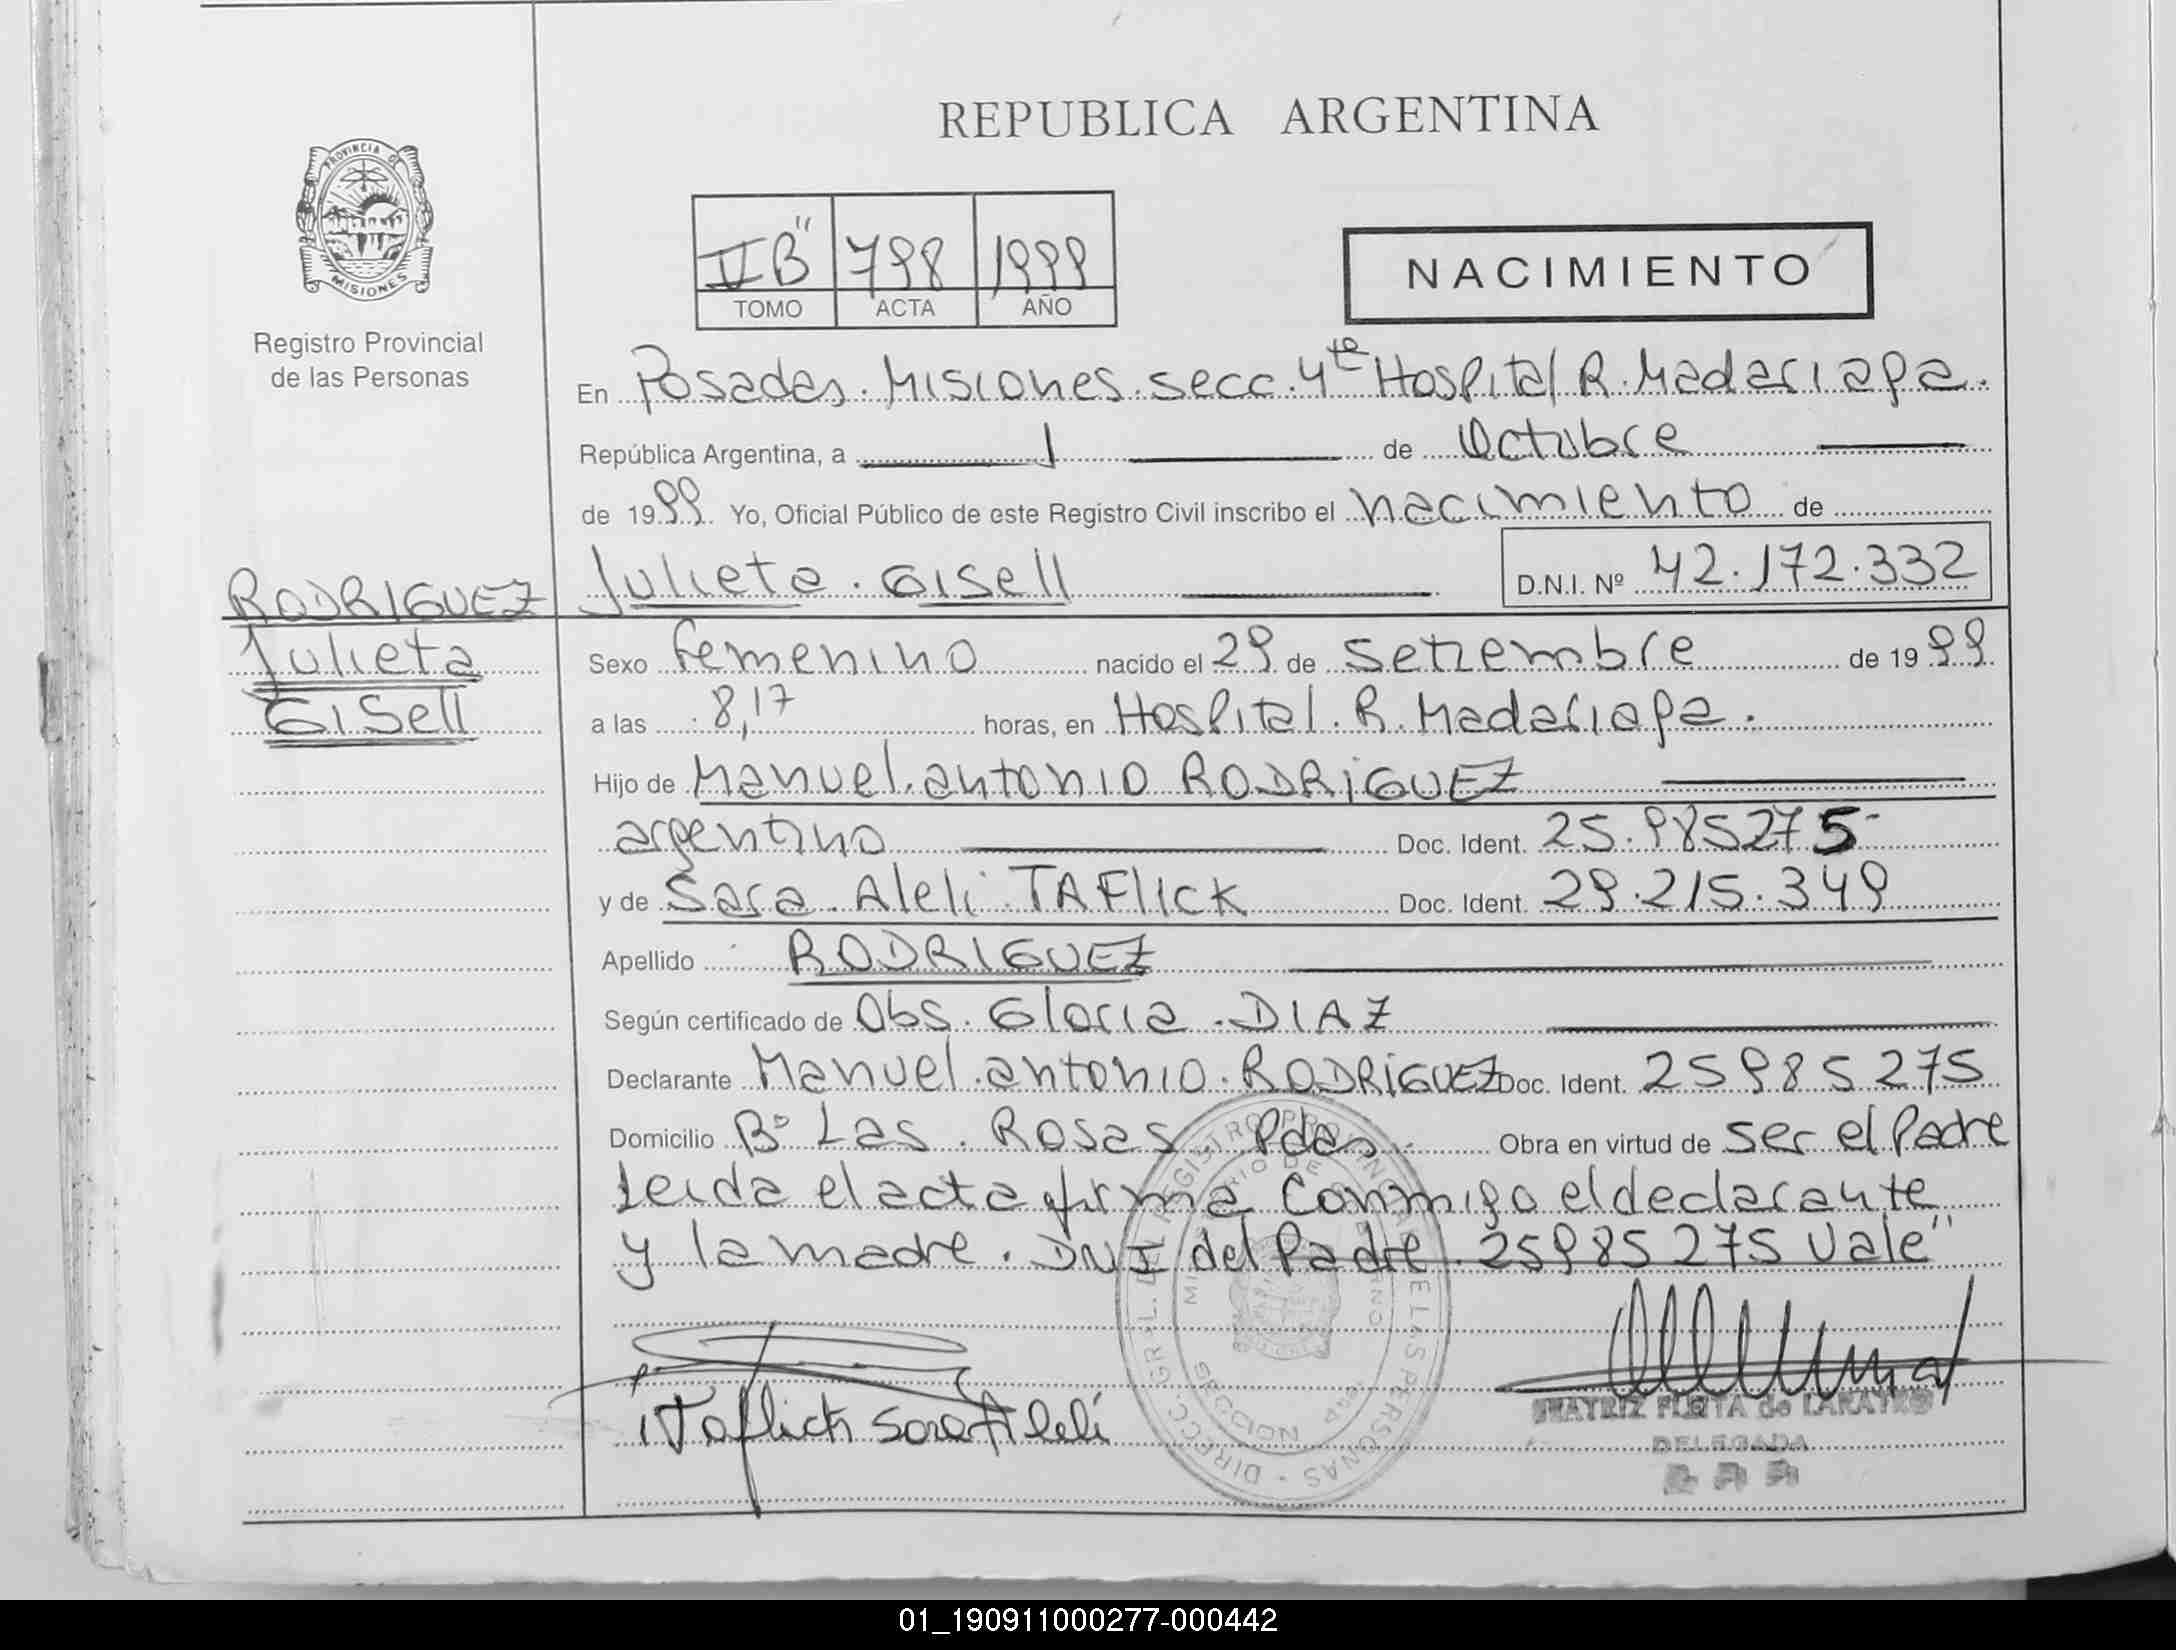 REPUBLICA ARGENTINA
PROVINCIA DE
MISIONES
Registro Provincial
de las Personas
II B" 798 1999
TOMO ACTA AÑO
NACIMIENTO
En Posadas. Misiones. secc. 4ta Hospital R. Madariaga.
República Argentina, a 1 de Octubre
de 1999. Yo, Oficial Público de este Registro Civil inscribo el nacimiento de
Julieta. Gisell D.N.I. Nº 42.172.332
RODRIGUEZ
Julieta
Gisell
Sexo femenino nacido el 29 de Setiembre de 1999.
a las 8,17 horas, en Hospital. R. Madariaga.
Hijo de Manuel. antonio RODRIGUEZ
argentino Doc. Ident. 25.985275
y de Sara. Aleli. TAFlICK Doc. Ident. 29.215.349
Apellido RODRIGUEZ
Según certificado de Obs. Gloria. DIAZ
Declarante Manuel. antonio. RODRIGUEZ Doc. Ident. 25985275
Domicilio Bº Las. Rosas Pdas. Obra en virtud de ser el Padre
Leida el acta firma Conmigo el declarante
y la madre. DNI del Padre. 25985275 Vale"
Taflick Sara Aleli
DIRECC. GRAL. DEL REGISTRO PROVINCIAL DE LAS PERSONAS
BEATRIZ de
DELEGADA
01_190911000277-000442